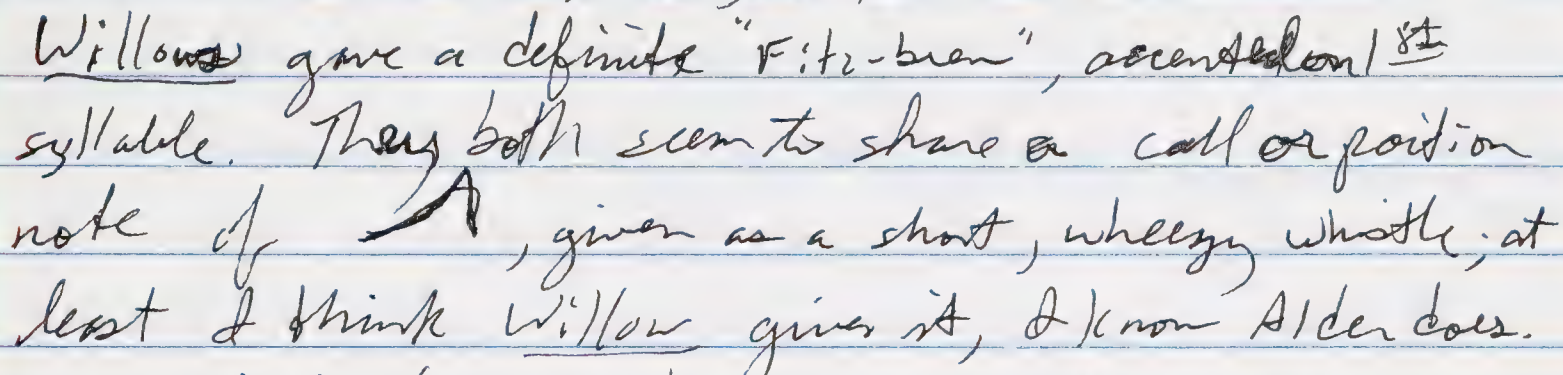 Willows gave a definite "Fitz-brew", accented on 1st
syllable. They both seem to share a call or position
note of , given as a short, wheezy whistle; at
least I think Willow gives it, I know Alder does.